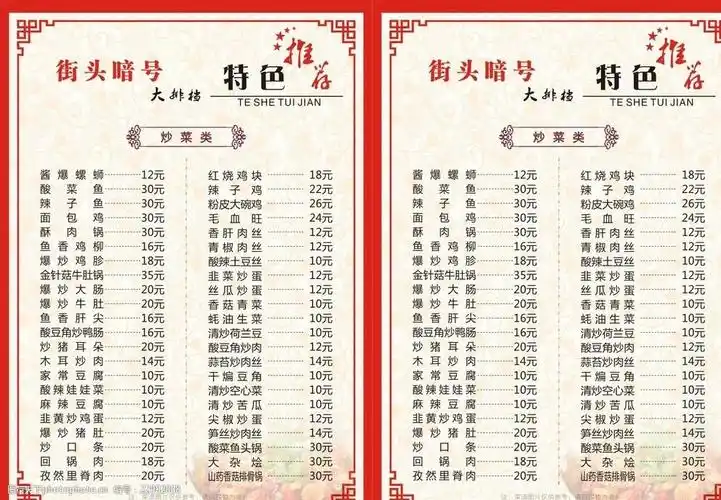 街头暗号
大排档
特色
推荐
TE SHE TUI JIAN
炒菜类
酱爆螺蛳 12元
酸菜鱼 30元
辣子鱼 30元
面包鸡 30元
酥肉锅 30元
鱼香鸡柳 16元
爆炒鸡胗 18元
金针菇牛肚锅 35元
爆炒大肠 20元
爆炒牛肚 20元
鱼香肝尖 16元
酸豆角炒鸭肠 16元
炒猪耳朵 20元
木耳炒肉 14元
家常豆腐 10元
酸辣娃娃菜 10元
麻辣豆腐 10元
韭黄炒鸡蛋 12元
爆炒猪肚 20元
炒口条 20元
回锅肉 18元
孜然里脊肉 20元
红烧鸡块 18元
辣子鸡 22元
粉皮大碗鸡 26元
毛血旺 24元
香肝肉丝 10元
青椒肉丝 10元
酸辣土豆丝 10元
韭菜炒蛋 10元
丝瓜炒蛋 10元
香菇青菜 10元
蚝油生菜 10元
清炒荷兰豆 10元
酸豆角炒肉 12元
蒜苔炒肉丝 14元
干煸豆角 10元
清炒空心菜 10元
清炒苦瓜 10元
尖椒炒蛋 12元
笋丝炒肉丝 14元
酸菜鱼头锅 30元
大杂烩 30元
山药香菇排骨锅 30元
街头暗号
大排档
特色
推荐
TE SHE TUI JIAN
炒菜类
酱爆螺蛳 12元
酸菜鱼 30元
辣子鱼 30元
面包鸡 30元
酥肉锅 30元
鱼香鸡柳 16元
爆炒鸡胗 18元
金针菇牛肚锅 35元
爆炒大肠 20元
爆炒牛肚 20元
鱼香肝尖 16元
酸豆角炒鸭肠 16元
炒猪耳朵 20元
木耳炒肉 14元
家常豆腐 10元
酸辣娃娃菜 10元
麻辣豆腐 10元
韭黄炒鸡蛋 12元
爆炒猪肚 20元
炒口条 20元
回锅肉 18元
孜然里脊肉 20元
红烧鸡块 18元
辣子鸡 22元
粉皮大碗鸡 26元
毛血旺 24元
香肝肉丝 10元
青椒肉丝 10元
酸辣土豆丝 10元
韭菜炒蛋 10元
丝瓜炒蛋 10元
香菇青菜 10元
蚝油生菜 10元
清炒荷兰豆 10元
酸豆角炒肉 12元
蒜苔炒肉丝 14元
干煸豆角 10元
清炒空心菜 10元
清炒苦瓜 10元
尖椒炒蛋 12元
笋丝炒肉丝 14元
酸菜鱼头锅 30元
大杂烩 30元
山药香菇排骨锅 30元